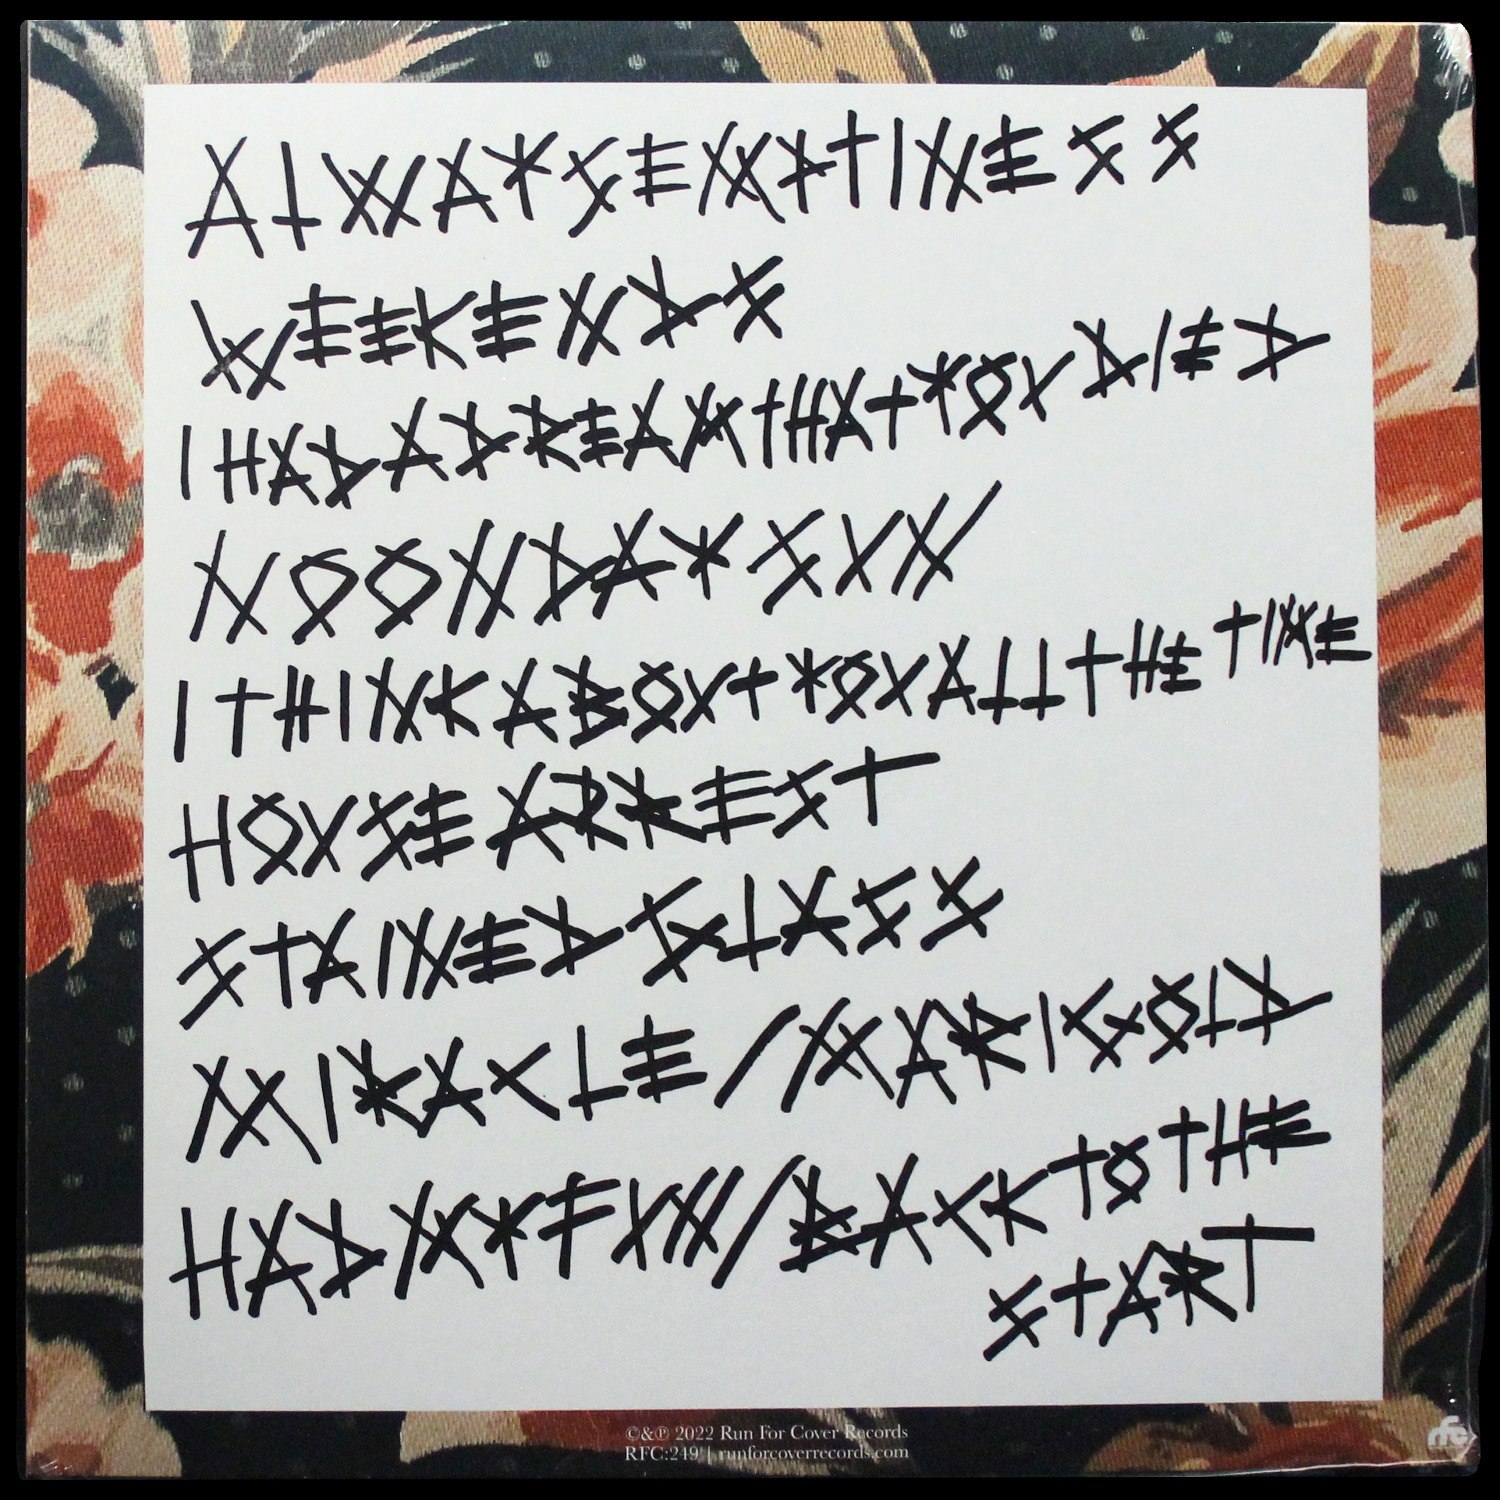 ALWAYS EMPTINESS
WEEKENDS
I HAD A DREAM THAT YOU DIED
NOONDAY SUN
I THINK ABOUT YOU ALL THE TIME
HOUSE ARREST
STAINED GLASS
MIRACLE / MARIGOLD
HAD MY FUN / BACK TO THE
START
©&℗ 2022 Run For Cover Records
RFC:249 | runforcoverrecords.com
rfc